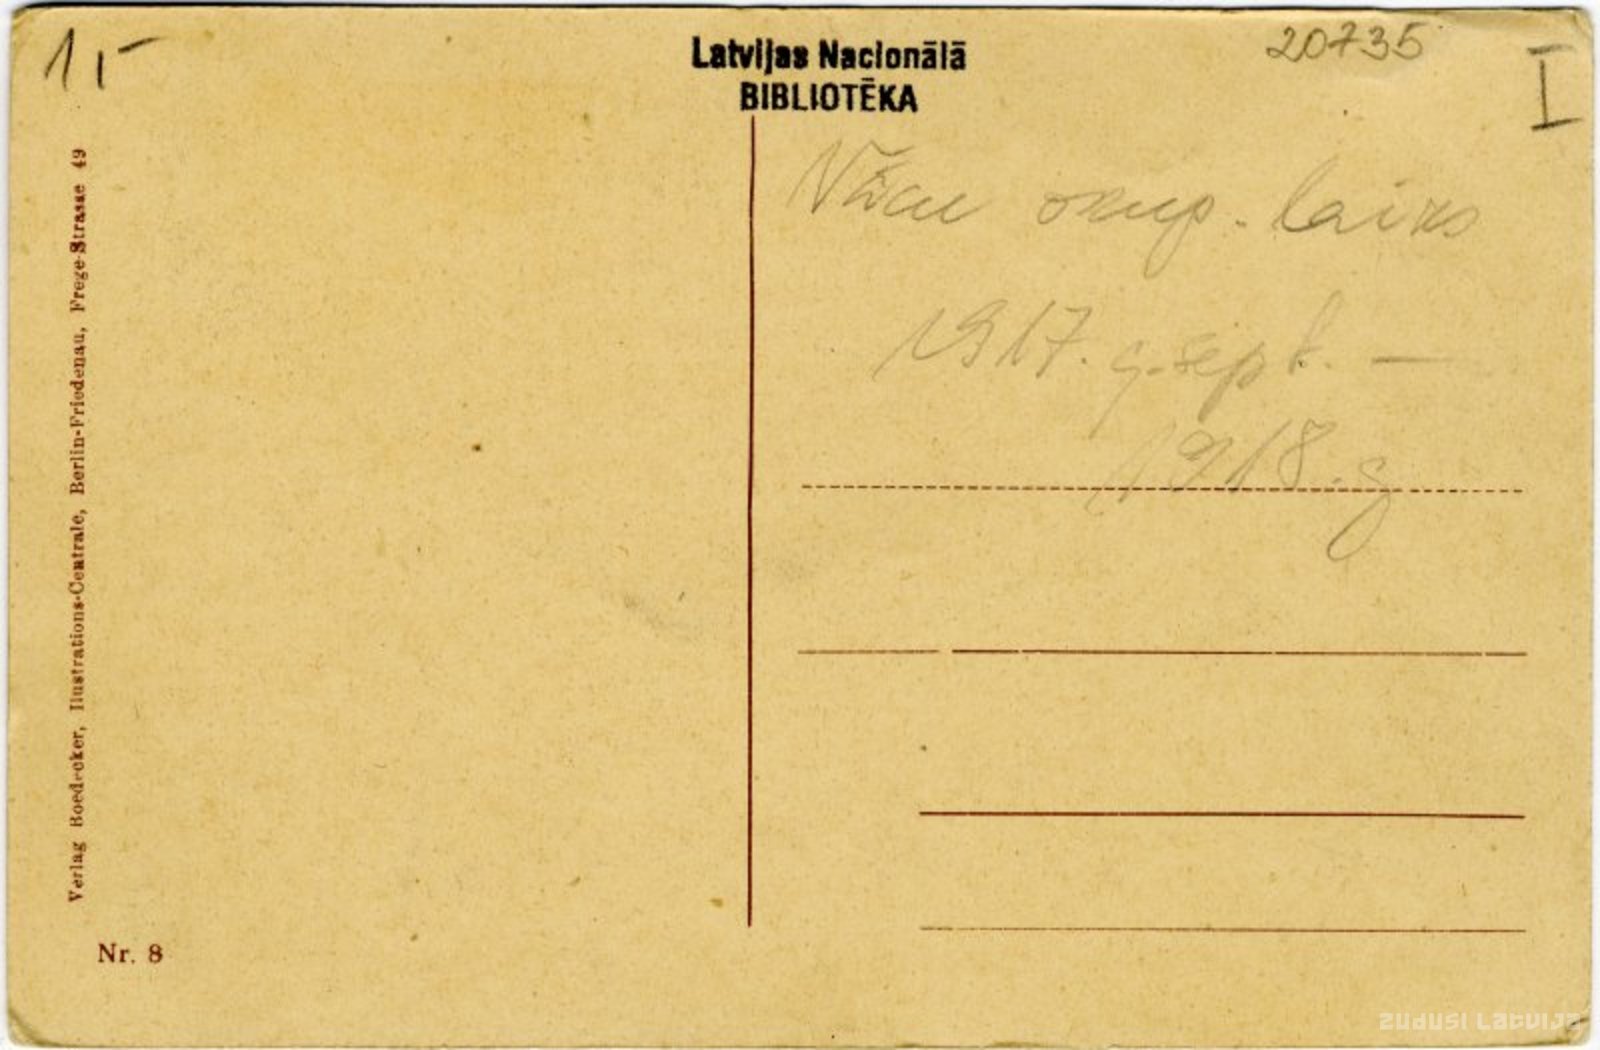 1,-
Latvijas Nacionālā
BIBLIOTĒKA
20735
I
Vācu okup. laiks
1917. g. sept. —
1918. g
Verlag Boedecker, Ilustrations-Centrale, Berlin-Friedenau, Frege-Strasse 49
Nr. 8
zudusi latvija